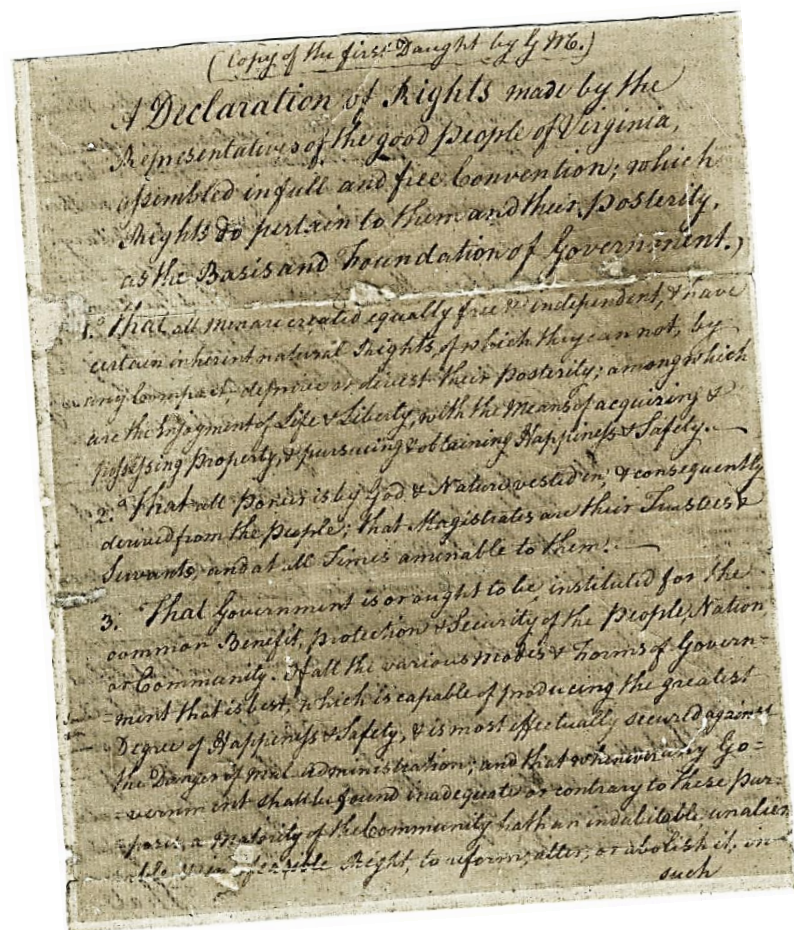 (Copy of the first Daught by G M.)
A Declaration of Rights made by the
Representatives of the good people of Virginia,
assembled in full and free Convention; which
Rights do pertain to them and their posterity,
as the Basis and Foundation of Government.)
1. That all men are created equally free & independent, & have
certain inherent natural Rights, of which they can not, by
any Compact, deprive or divest their Posterity; among which
are the Enjoyment of Life & Liberty, with the Means of acquiring &
possessing Property, & pursuing & obtaining Happiness & Safety.
2. That all Power is by God & Nature vested in, & consequently
derived from the People; that Magistrates are their Trustees &
Servants, and at all Times amenable to them.
3. That Government is or ought to be instituted for the
common Benefit, protection & Security of the People, Nation,
or Community. Of all the various Modes & Forms of Govern=
=ment that is best, which is capable of producing the greatest
Degree of Happiness & Safety, & is most effectually secured against
the Danger of mal-administration; and that whenever any Go=
=vernment shall be found inadequate or contrary to these pur=
=poses, a Majority of the Community hath an indubitable unalien
able & indefeasible Right, to reform, alter, or abolish it, in
such